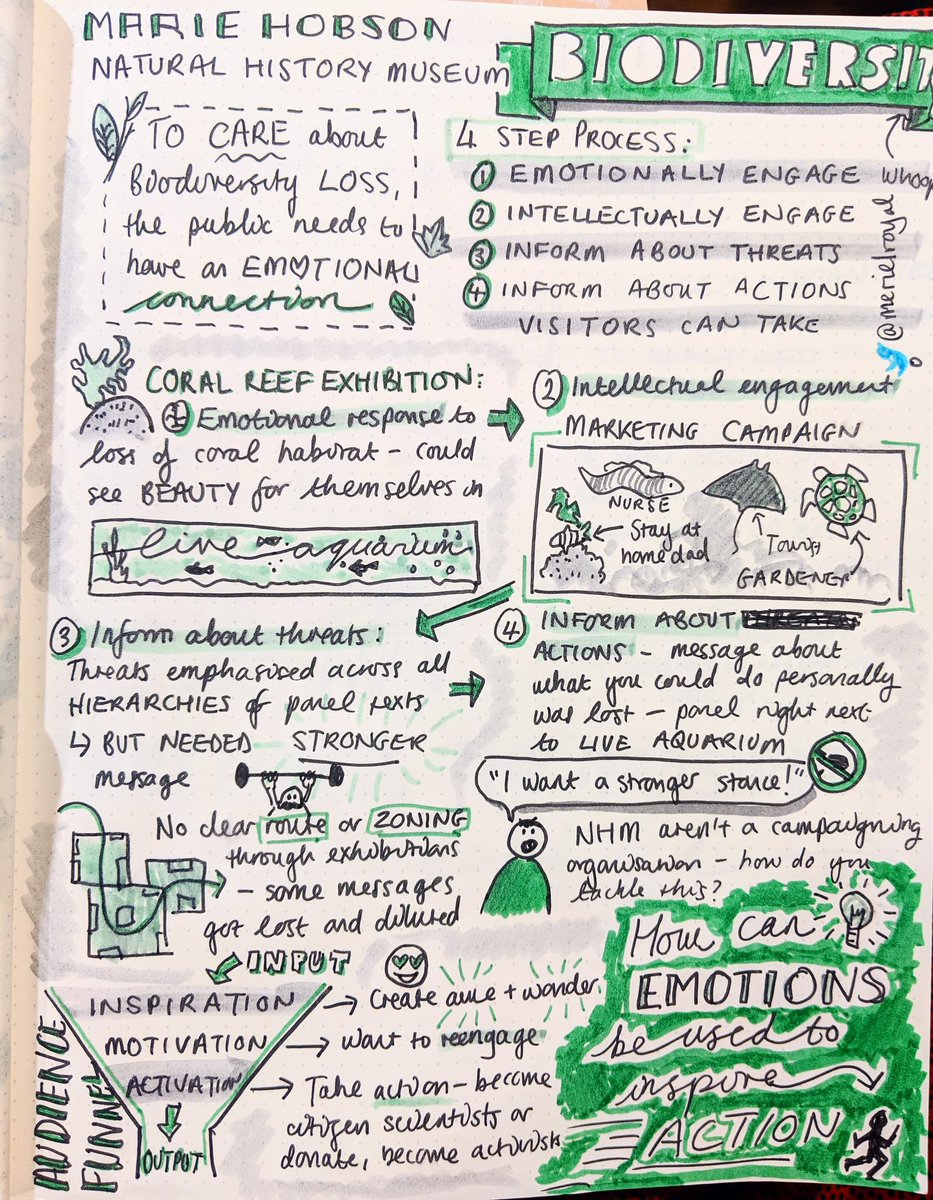 MARIE HOBSON
NATURAL HISTORY MUSEUM
BIODIVERSIT
TO CARE about
Biodiversity LOSS,
the public needs to
have an EMOTIONAL
connection
4 STEP PROCESS:
1 EMOTIONALLY ENGAGE
2 INTELLECTUALLY ENGAGE
3 INFORM ABOUT THREATS
4 INFORM ABOUT ACTIONS
VISITORS CAN TAKE
whoop
@merielroyal
CORAL REEF EXHIBITION:
1 Emotional response to
loss of coral habitat – could
see BEAUTY for themselves in
live aquarium
2 Intellectual engagement
MARKETING CAMPAIGN
NURSE
Stay at
home dad
Tourist
GARDENER
3 Inform about threats:
Threats emphasised across all
HIERARCHIES of panel texts
↳ BUT NEEDED STRONGER
message
4 INFORM ABOUT
ACTIONS – message about
what you could do personally
was lost – panel right next
to LIVE AQUARIUM
"I want a stronger stance!"
NHM aren't a campaigning
organisation – how do you
tackle this?
No clear route or ZONING
through exhibitions
– some messages
got lost and diluted
INPUT
AUDIENCE
FUNNEL
INSPIRATION → Create awe + wonder
MOTIVATION → want to reengage
ACTIVATION → Take action – become
citizen scientists or
donate, become activists
OUTPUT
How can
EMOTIONS
be used to
inspire
ACTION